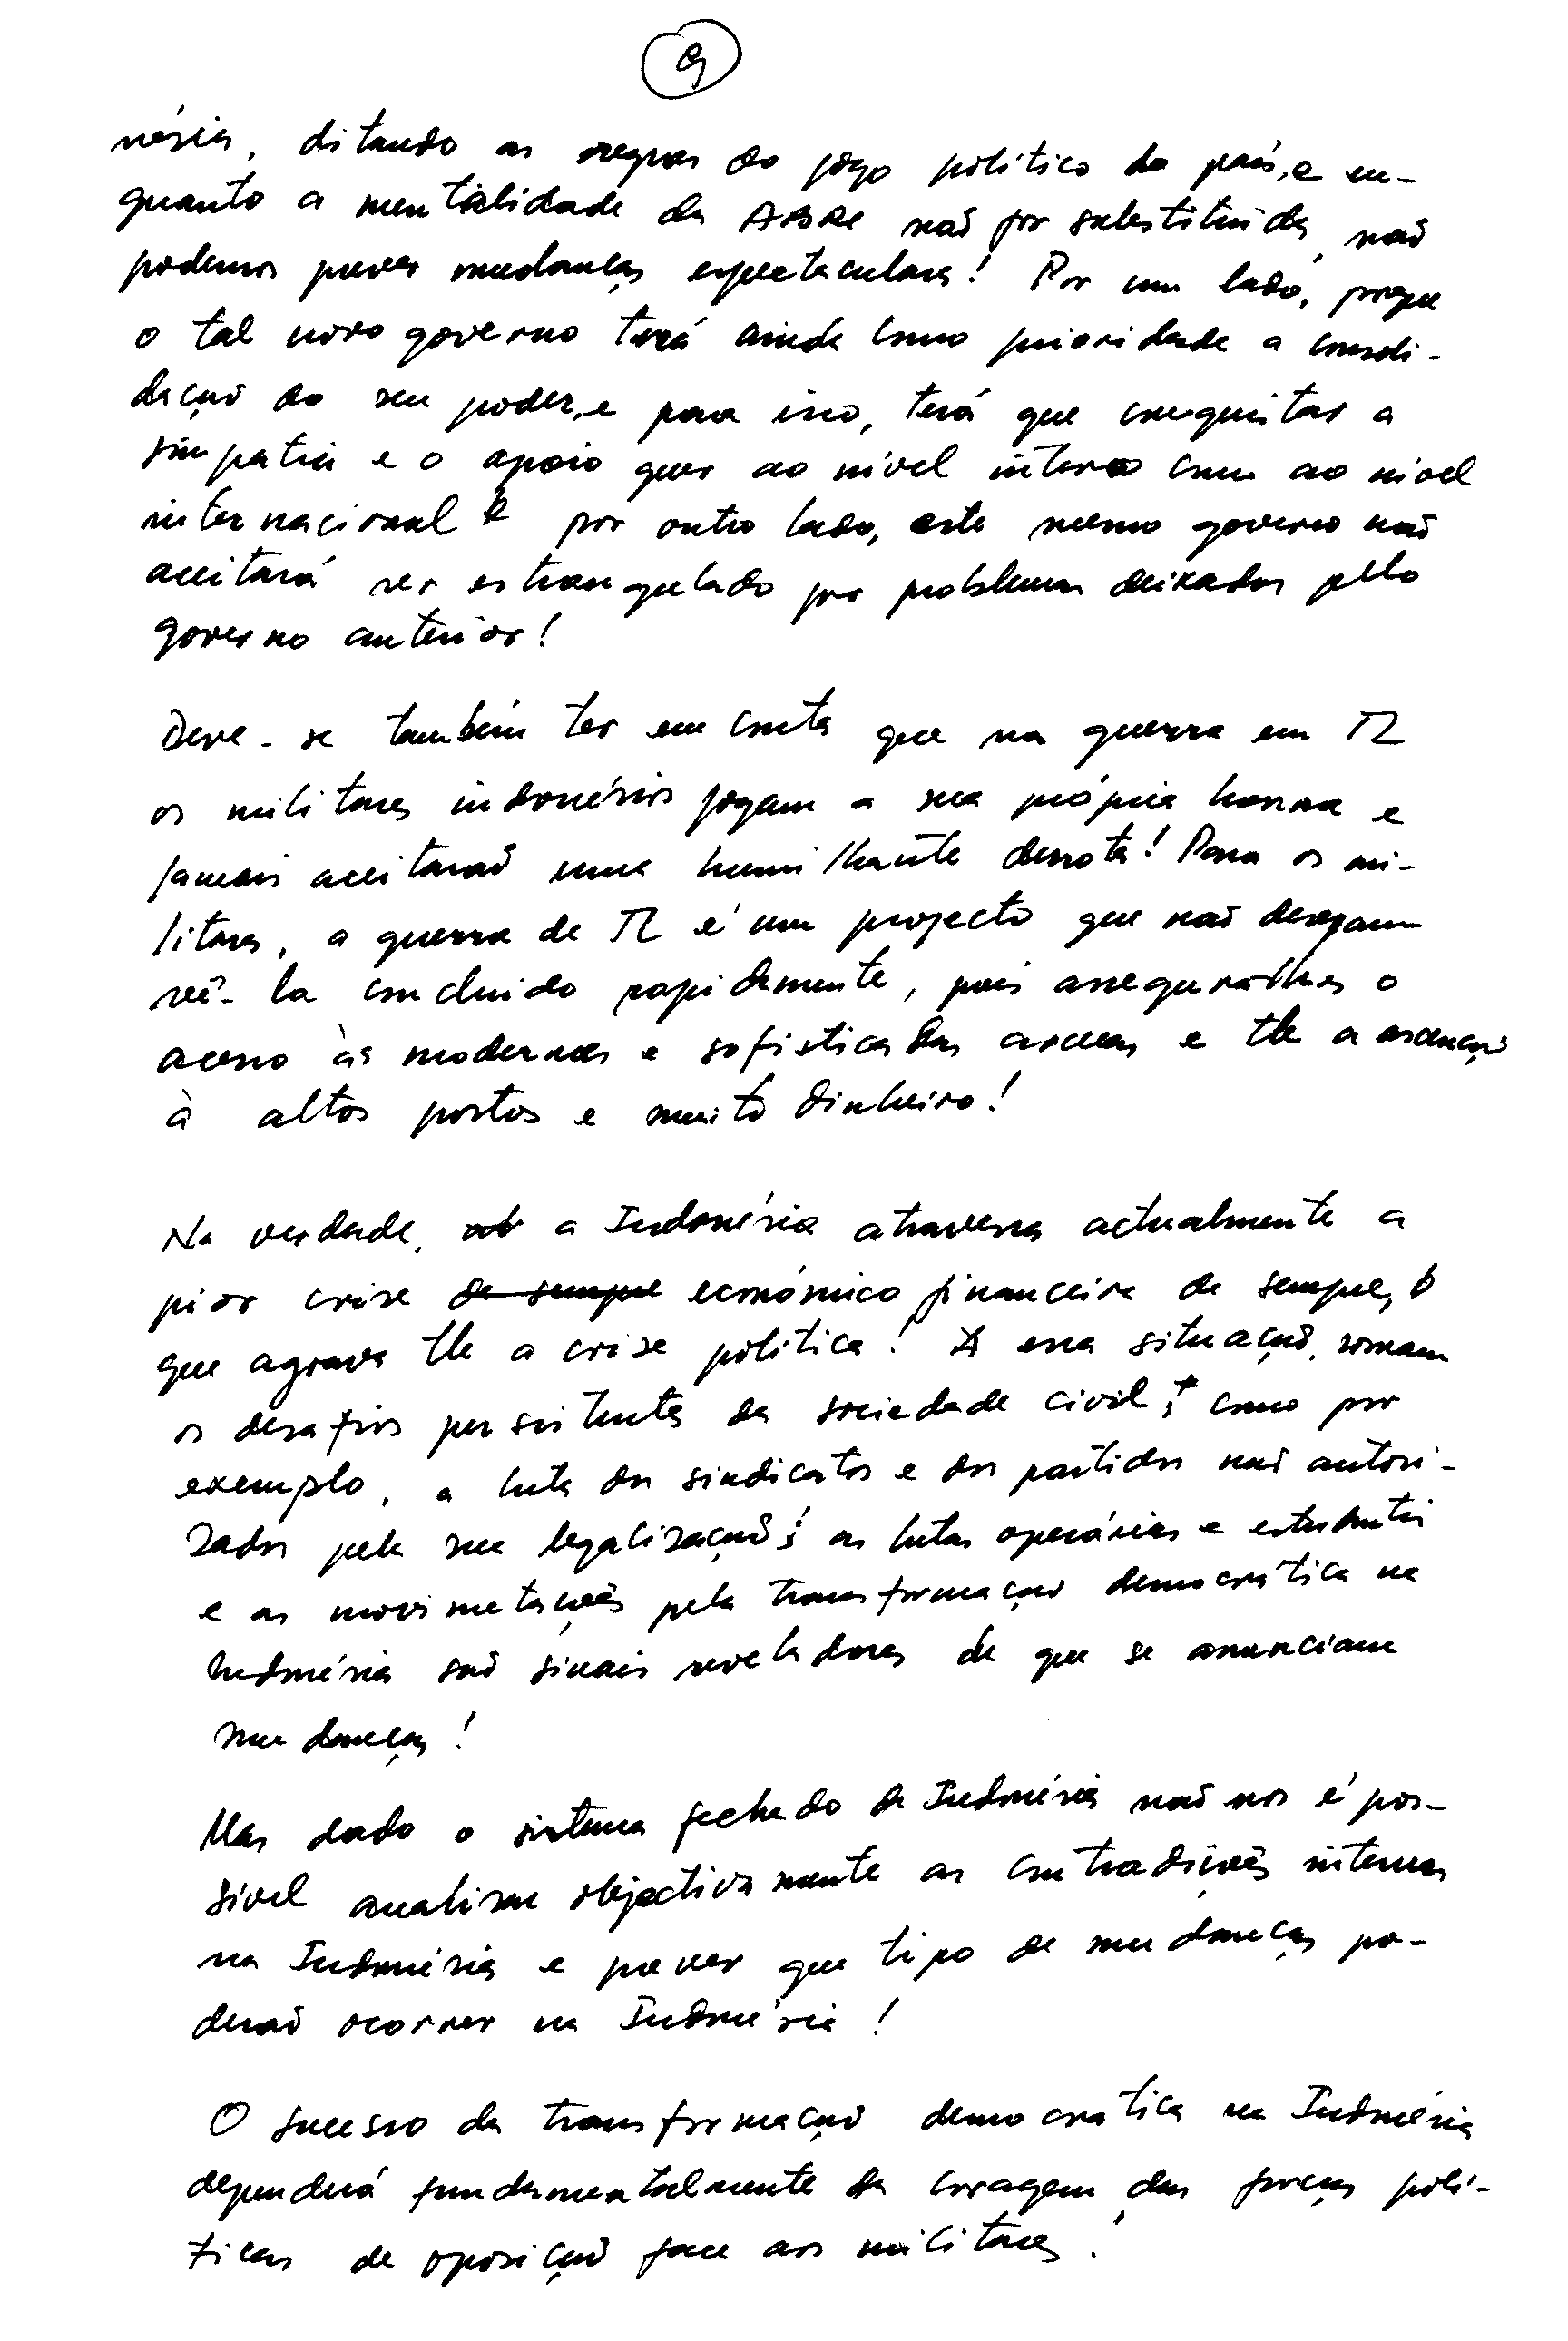 9
nésia, ditando as regras do jogo político do país, e en-
quanto a mentalidade da ABRI não for substituida, não
podemos prever mudanças espectaculares! Por um lado, porque
o tal novo governo terá ainda como prioridade a consoli-
dação do seu poder, e para isso, terá que conquistar a
simpatia e o apoio quer ao nível interno como ao nível
internacional e por outro lado, este mesmo governo não
aceitará ser estrangulado por problemas deixados pelo
governo anterior!
Deve-se também ter em conta que na guerra em TL
os militares indonésios jogam a sua própria honra e
jamais aceitarão uma humilhante derrota! Para os mi-
litares, a guerra de TL é um projecto que não desejam
vê-la concluído rapidamente, pois assegura-lhes o
acesso às modernas e sofisticadas armas e lhe a ascenção
à altos postos e muito dinheiro!
Na verdade, a Indonésia atravessa actualmente a
pior crise de sempre económico financeira de sempre, o
que agrava lhe a crise política! A essa situação, somam
os desafios persistentes da sociedade civil, como por
exemplo, a luta dos sindicatos e dos partidos não autori-
zados pela sua legalização; as lutas operárias e estudantis
e as movimetações pela transformação democrática na
Indonésia são sinais reveladores de que se anunciam
mudanças!
Mas dado o sistema fechado da Indonésia não nos é pos-
sível analisar objectivamente as contradições internas
na Indonésia e prever que tipo de mudanças po-
derão ocorrer na Indonésia!
O sucesso da transformação democratica na Indonésia
dependerá fundamentalmente da coragem das forças polí-
ticas de oposição face aos militares!